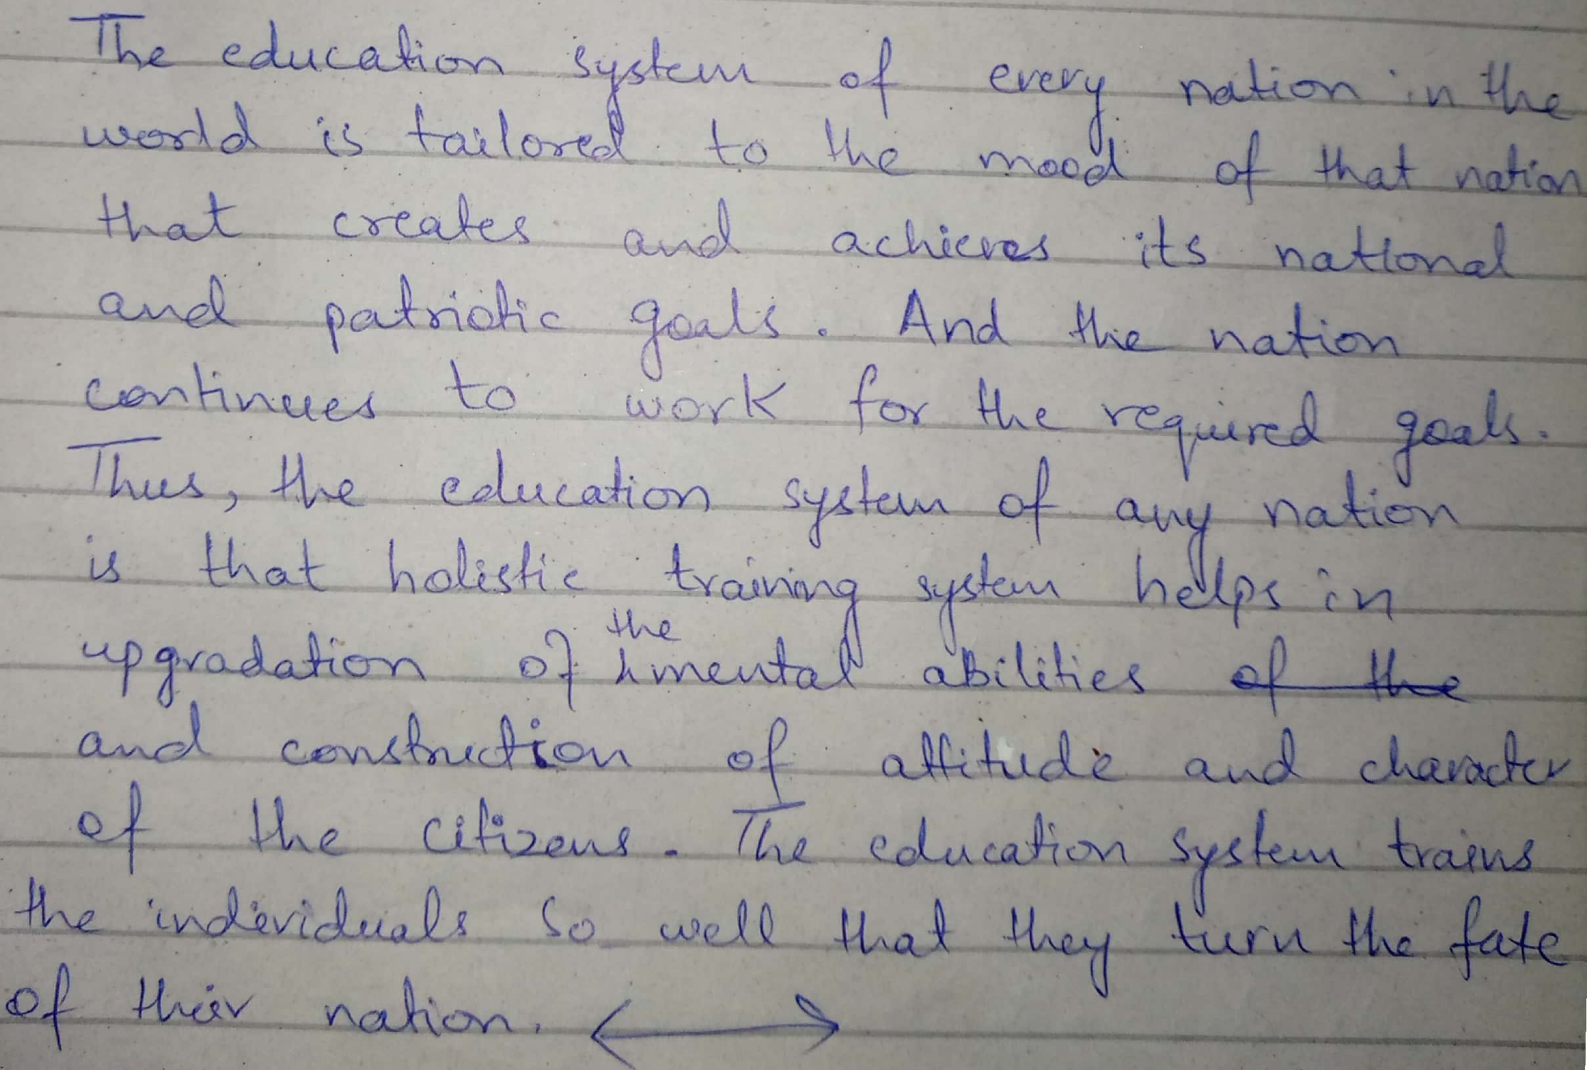 The education system of every nation in the
world is tailored to the mood of that nation
that creates and achieves its national
and patriotic goals. And the nation
continues to work for the required goals.
Thus, the education system of any nation
is that holistic training system helps in
upgradation of the mental abilities of the
and construction of attitude and character
of the citizens. The education system trains
the individuals so well that they turn the fate
of their nation.